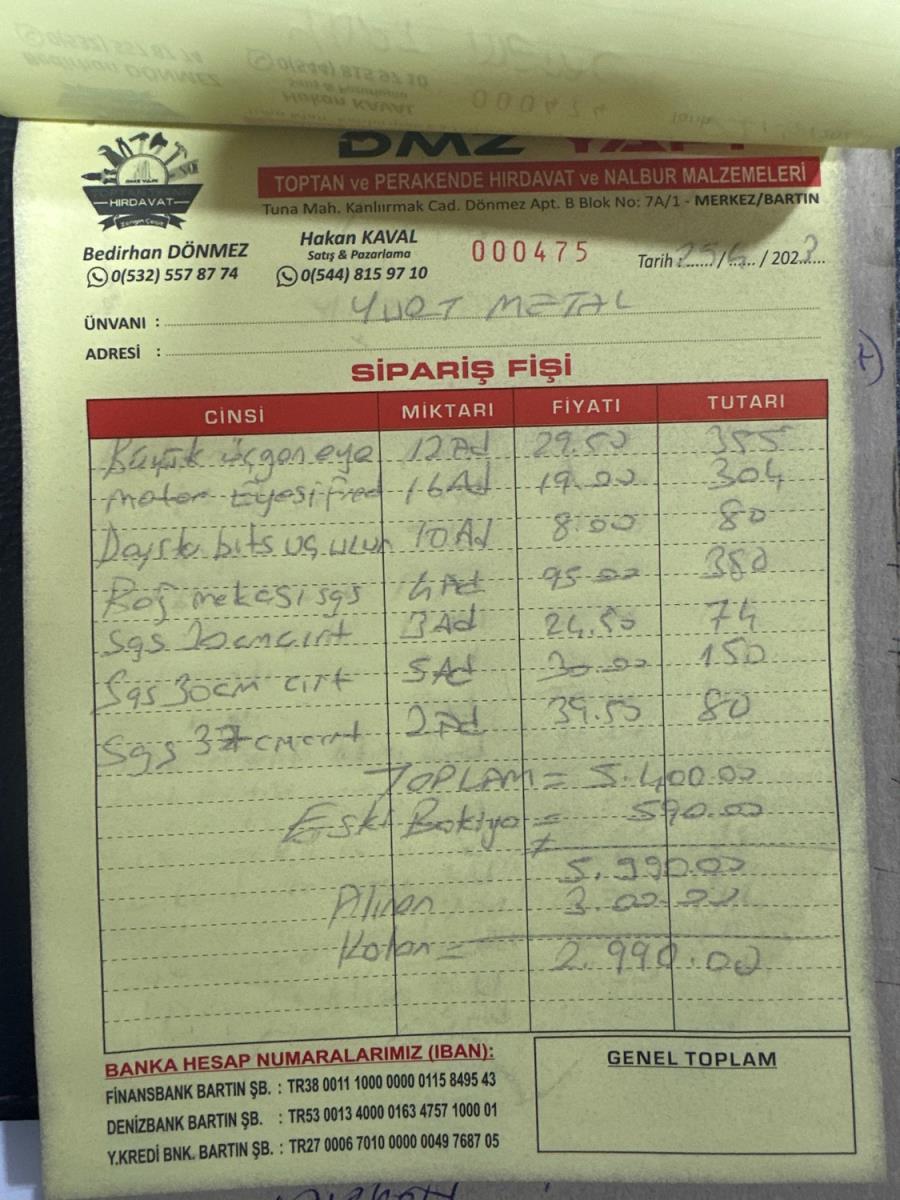 DMZ YAPI
TOPTAN ve PERAKENDE HIRDAVAT ve NALBUR MALZEMELERİ
HIRDAVAT
Tuna Mah. Kanlıırmak Cad. Dönmez Apt. B Blok No: 7A/1 - MERKEZ/BARTIN
Bedirhan DÖNMEZ
0(532) 557 87 74
Hakan KAVAL
Satış & Pazarlama
0(544) 815 97 10
000475
Tarih : 25 / 6 / 202
ÜNVANI : YURT METAL
ADRESİ :
SİPARİŞ FİŞİ
CİNSİ MİKTARI FİYATI TUTARI
Büyük üçgen eye 12 Ad 29.50 355
motor Eyesi 16 Ad 19.00 304
bits uç uzun 10 Ad 8.00 80
4 Ad 95.00 380
Sgs 20cm cırt 3 Ad 24.50 74
Sgs 30cm cırt 5 Ad 30.00 150
Sgs 37cm cırt 2 Ad 39.50 80
TOPLAM = 5.400.00
Eski Bakiye = 590.00
+
5.990.00
Alınan 3.00.00
Kalan = 2.990.00
BANKA HESAP NUMARALARIMIZ (IBAN):
FİNANSBANK BARTIN ŞB. : TR38 0011 1000 0000 0115 8495 43
DENİZBANK BARTIN ŞB. : TR53 0013 4000 0163 4757 1000 01
Y.KREDİ BNK. BARTIN ŞB. : TR27 0006 7010 0000 0049 7687 05
GENEL TOPLAM